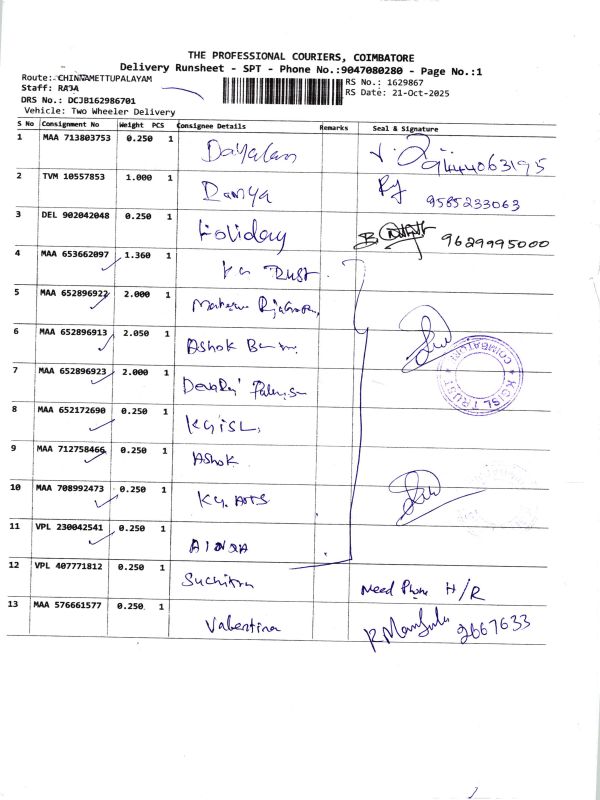 THE PROFESSIONAL COURIERS, COIMBATORE
Delivery Runsheet - SPT - Phone No.:9047080280 - Page No.:1
Route: CHINNAMETTUPALAYAM
RS No.: 1629867
Staff: RAJA
RS Date: 21-Oct-2025
DRS No.: DCJB162986701
Vehicle: Two Wheeler Delivery
S No Consignment No Weight PCS Consignee Details Remarks Seal & Signature
1 MAA 713803753 0.250 1 Dayalan
2 TVM 10557853 1.000 1 Ramya 9585233063
3 DEL 902042048 0.250 1 Holiday 9629995000
4 MAA 653662097 1.360 1 KG TRUST
5 MAA 652896922 2.000 1
6 MAA 652896913 2.050 1 Ashok
7 MAA 652896923 2.000 1 Devaraj
8 MAA 652172690 0.250 1 KGISL
KGISL TRUST * COIMBATORE *
9 MAA 712758466 0.250 1 Ashok
10 MAA 708992473 0.250 1 KG. ARTS
11 VPL 230042541 0.250 1
12 VPL 407771812 0.250 1 Suchitra Need Phone H/R
13 MAA 576661577 0.250 1 Valentina R Manjula 2667633